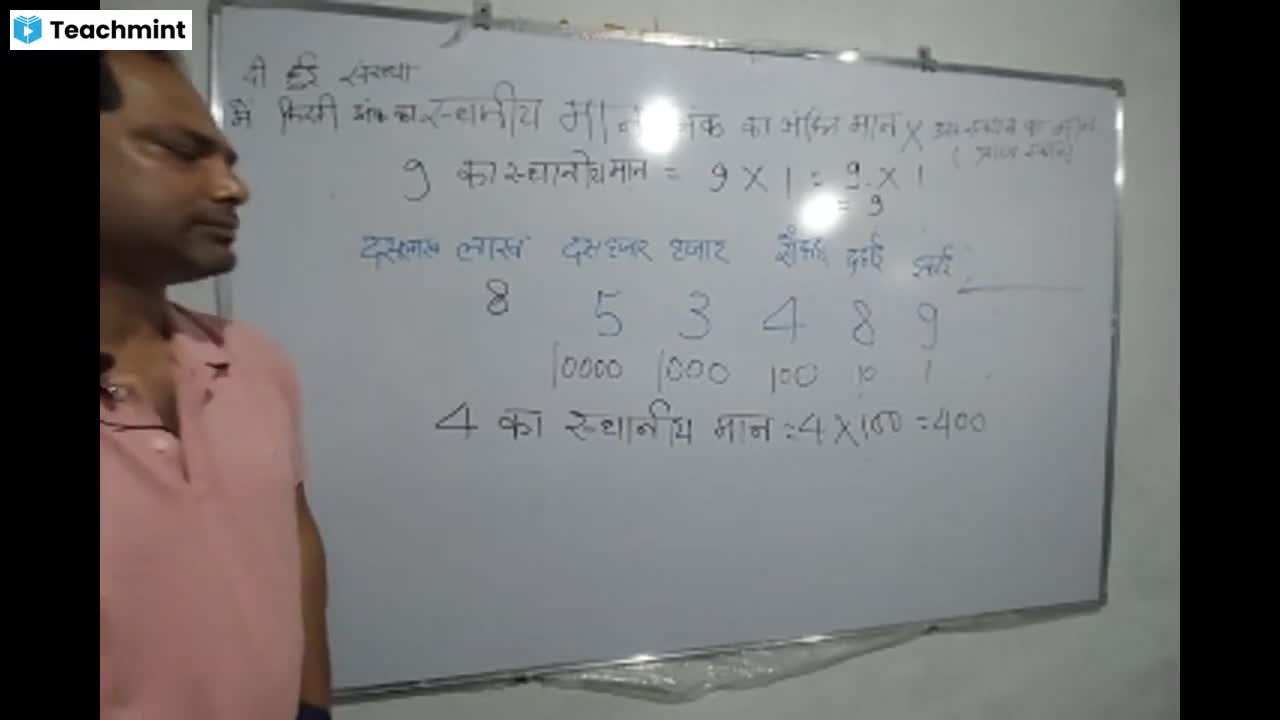 Teachmint
दी हुई संख्या
में किसी अंक का स्थानीय मान अंक का मान X
9 का स्थानीय मान = 9 X 1 = 9 X 1
= 9
दसलाख लाख दसहजार हजार सैंकड़ा दहाई इकाई
8 5 3 4 8 9
10000 1000 100 10 1
4 का स्थानीय मान = 4 X 100 = 400